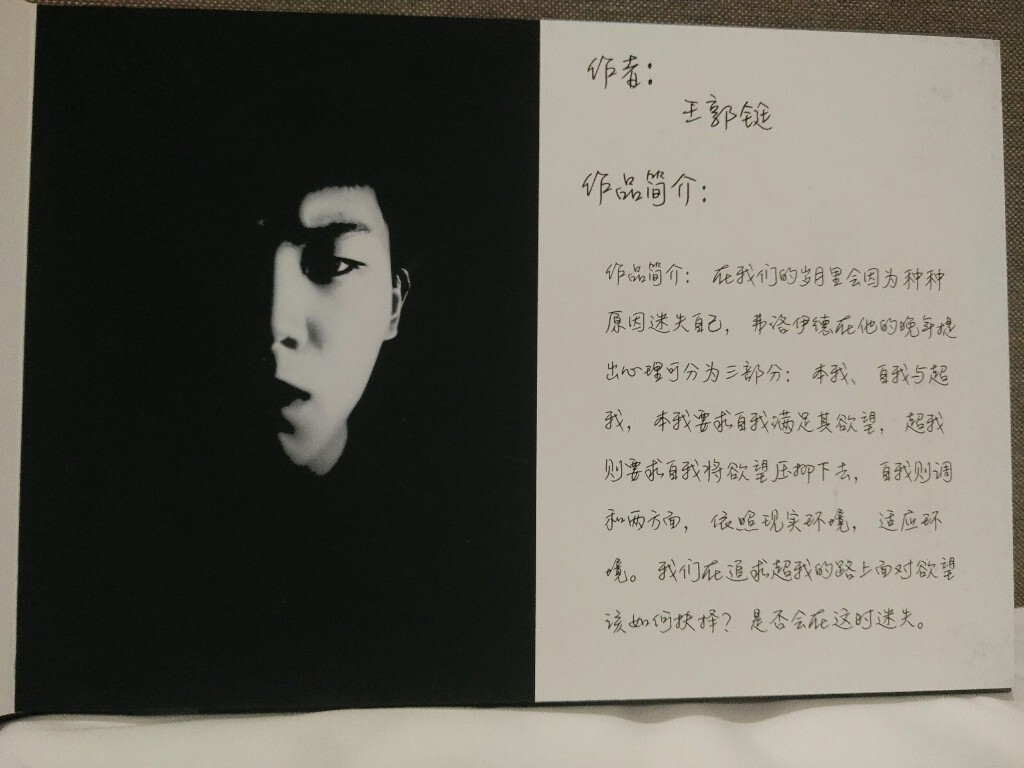 作者：
王郭铤
作品简介：
作品简介：在我们的岁月里会因为种种
原因迷失自己，弗洛伊德在他的晚年提
出心理可分为三部分：本我、自我与超
我，本我要求自我满足其欲望，超我
则要求自我将欲望压抑下去，自我则调
和两方面，依照现实环境，适应环
境。我们在追求超我的路上面对欲望
该如何抉择？是否会在这时迷失。